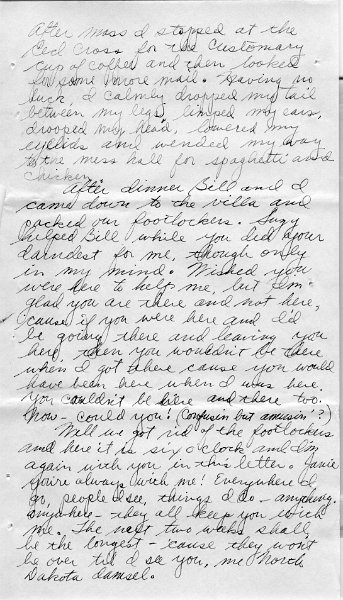 After mass I stopped at the
Red Cross for the customary
cup of coffee and then looked
for some more mail. Having no
luck, I calmly dropped my tail
between my legs, limped my ears,
drooped my head, lowered my
eyelids and wended my way
to the mess hall for spaghetti and
chicken.
After dinner Bill and I
came down to the villa and
packed our footlockers. Suzy
helped Bill while you did your
darndest for me, though only
in my mind. Wished you
were here to help me, but I'm
glad you are there and not here,
'cause if you were here and I'd
be going there and leaving you
here, then you wouldn't be there
when I got there cause you would
have been here when I was here.
You couldn't be here and there too.
Now - could you! (Confusin but amusin'?)
Well we got rid of the footlockers
and here it is six o'clock and I'm
again with you in this letter. Janie
you're always with me! Everywhere I
go, people I see, things I do - anything,
anywhere - they all keep you with
me. The next two weeks shall
be the longest - 'cause they won't
be over til I see you, me North
Dakota damsel.